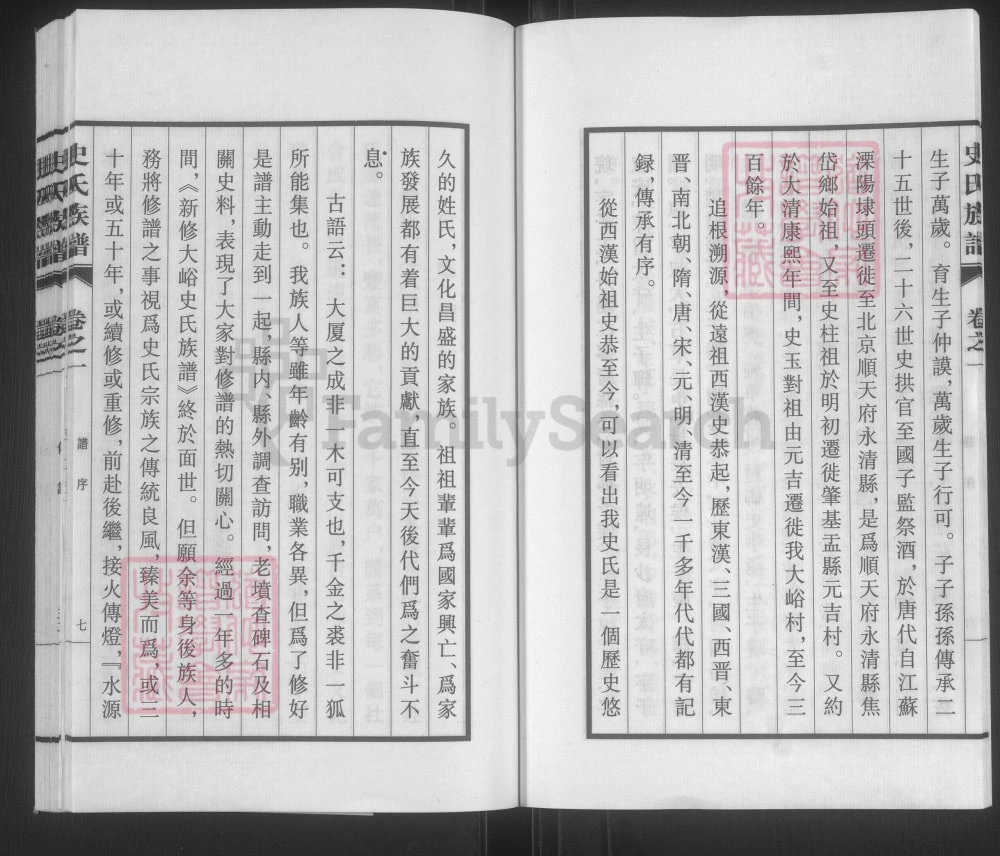 史氏族譜
卷之一
生子萬歲。育生子仲謨，萬歲生子行可。子子孫孫傳承二
十五世後，二十六世史拱官至國子監祭酒，於唐代自江蘇
溧陽埭頭遷徙至北京順天府永清縣，是爲順天府永清縣焦
岱鄉始祖，又至史柱祖於明初遷徙肇基盂縣元吉村。又約
於大清康熙年間，史玉對祖由元吉遷徙我大峪村，至今三
百餘年。
追根溯源，從遠祖西漢史恭起，歷東漢、三國、西晋、東
晋、南北朝、隋、唐、宋、元、明、清至今一千多年代代都有記
録，傳承有序。
從西漢始祖史恭至今，可以看出我史氏是一個歷史悠
久的姓氏，文化昌盛的家族。祖祖輩輩爲國家興亡、爲家
族發展都有着巨大的貢獻，直至今天後代們爲之奮斗不
息。
古語云：大厦之成非一木可支也，千金之裘非一狐
所能集也。我族人等雖年齡有别，職業各異，但爲了修好
是譜主動走到一起，縣内、縣外調查訪問，老墳查碑石及相
關史料，表現了大家對修譜的熱切關心。經過一年多的時
間，《新修大峪史氏族譜》終於面世。但願余等身後族人，
務將修譜之事視爲史氏宗族之傳統良風，臻美而爲，或三
十年或五十年，或續修或重修，前赴後繼，接火傳燈，『水源
史氏族譜
卷之一
譜序
七
FamilySearch